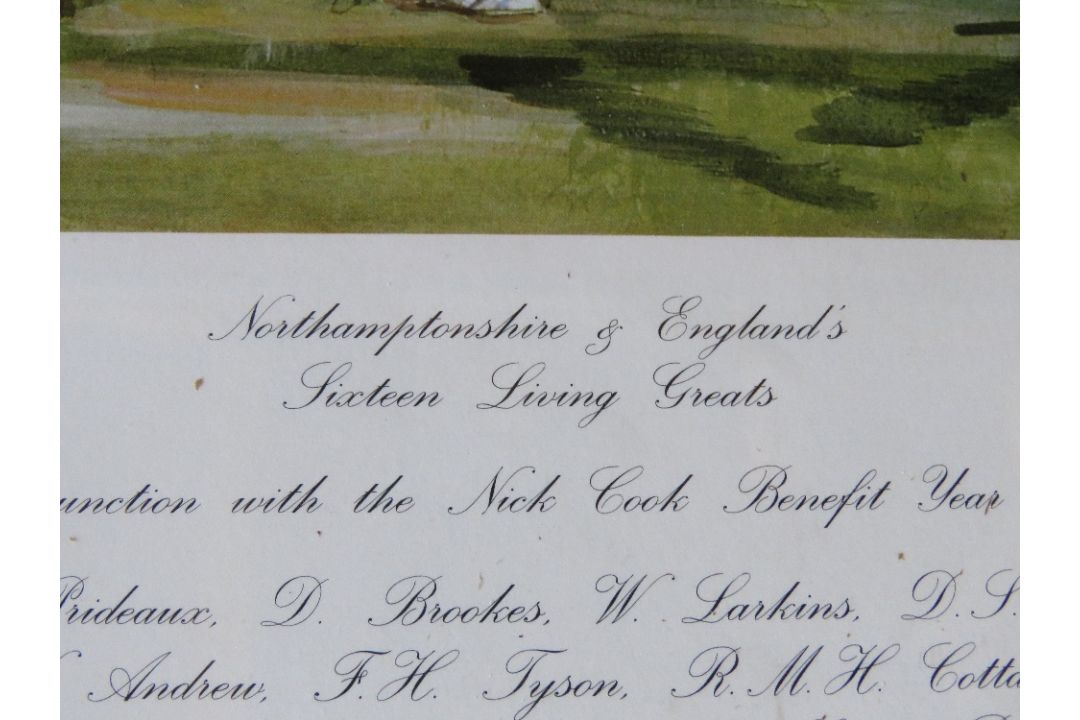 Northamptonshire & England's
Sixteen Living Greats
unction with the Nick Cook Benefit Year
Prideaux, D. Brookes, W. Larkins, D. S.
Andrew, F. H. Tyson, R. M. H. Cotta